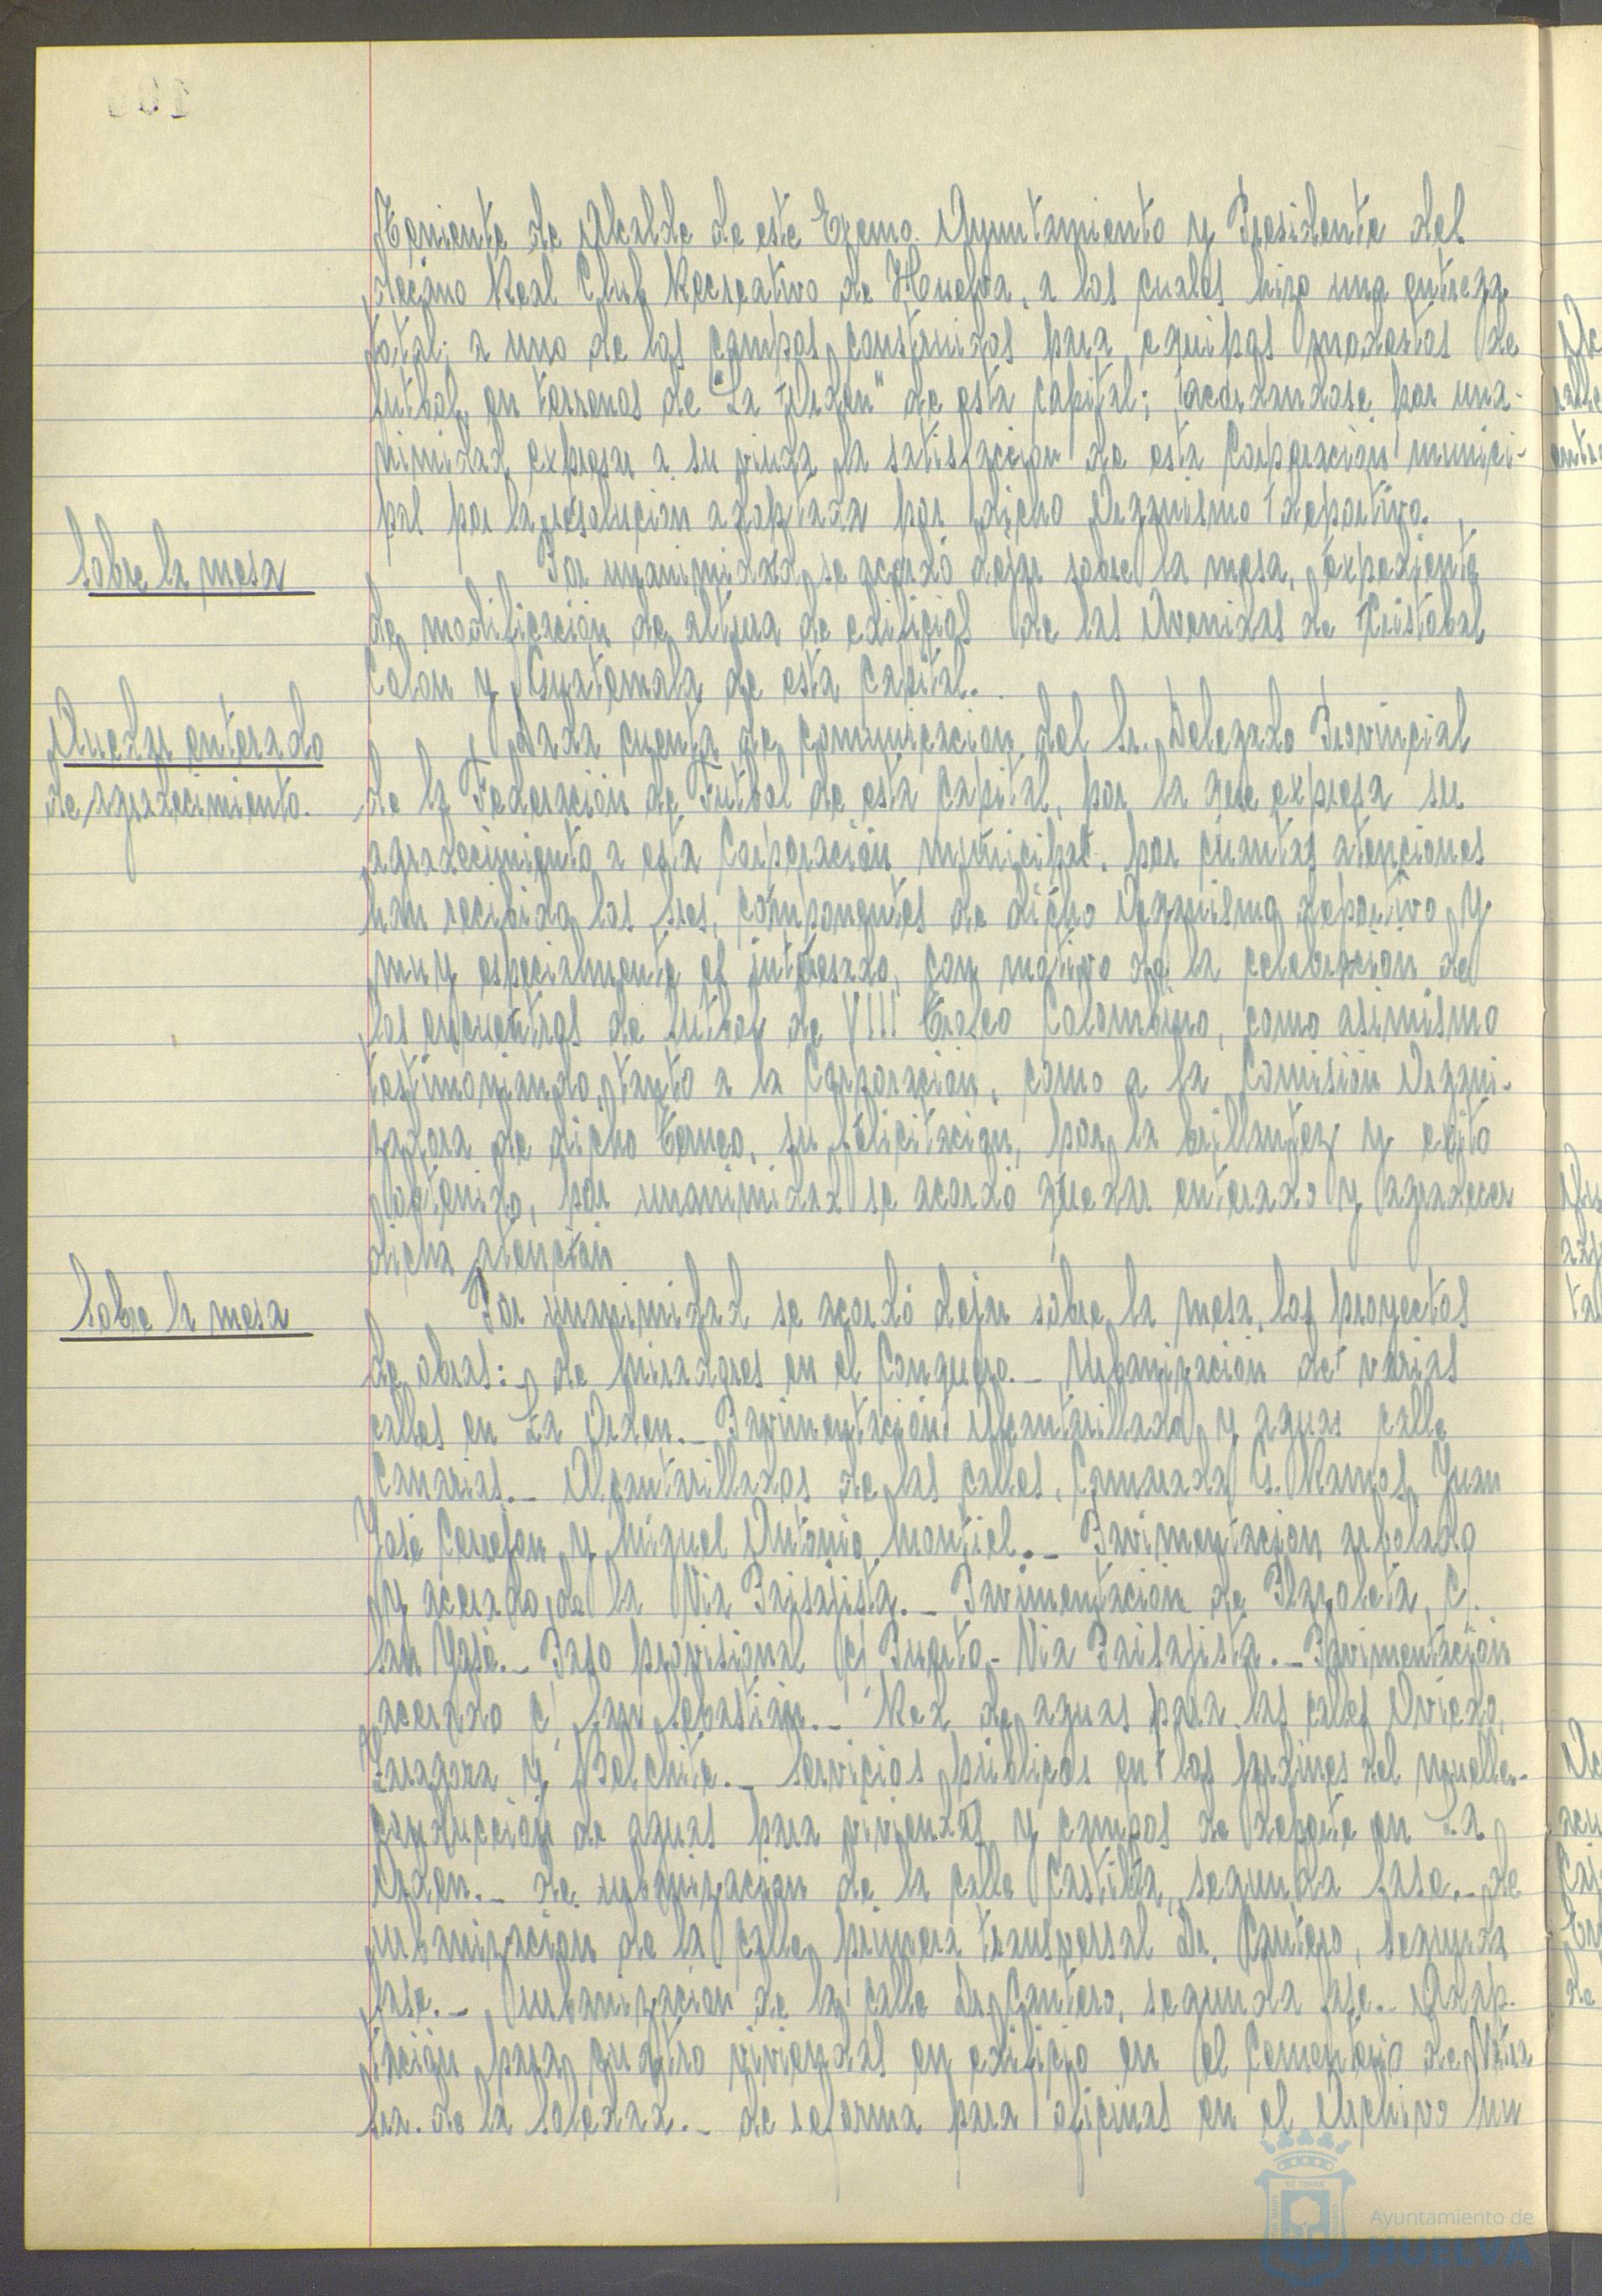 Teniente de Alcalde de este Excmo. Ayuntamiento y Presidente del
decano Real Club Recreativo de Huelva, a los cuales hizo una entrega
total; a uno de los campos construidos para equipos modestos de
futbol, en terrenos de "La Orden" de esta Capital; acordandose por una-
nimidad expresar a su viuda la satisfaccion de esta Corporación munici-
pal por la resolución adoptada por dicho Organismo deportivo.
Sobre la mesa
Por unanimidad se acordó dejar sobre la mesa, expediente
de modificación de altura de edificios de las Avenidas de Cristobal
Colon y Guatemala de esta Capital.
Quedar enterado
de agradecimiento.
Dada cuenta de comunicacion del Sr. Delegado Provincial
de la Federación de Futbol de esta Capital, por la que expresa su
agradecimiento a esta Corporación municipal, por cuantas atenciones
han recibido los Sres. componentes de dicho Organismo deportivo y
muy especialmente el interesado, con motivo de la celebracion de
los encuentros de futbol de VIII Trofeo Colombino, como asimismo
testimoniando, tanto a la Corporación, como a la Comisión Organi-
zadora de dicho torneo, su felicitacion, por la brillantez y exito
obtenido, por unanimidad se acordó quedar enterado y agradecer
dicha atención
Sobre la mesa
Por unanimidad se acordó dejar sobre la mesa, los proyectos
de obras: de miradores en el Conquero.- Urbanizacion de varias
calles en La Orden.- Pavimentación Alcantarillado y aguas calle
Canarias.- Alcantarillados de las calles, Camarada G. Ramos, Juan
José Cerejon y Miguel Antonio Montiel.- Pavimentacion arbolado
y acerado de la Via Paisajista.- Pavimentación de Plazoleta, C/.
San José.- Paso provisional C/ Puerto-Via Paisajista.- Pavimentación
acerado C/ San Sebastián.- Red de aguas para las calles Oviedo,
Zaragoza y Belchite.- Servicios públicos en los jardines del muelle.-
conducción de aguas para viviendas y campos de deporte en La
Orden.- de urbanizacion de la calle Castilla, segunda fase.- de
urbanizacion de la calle primera transversal Dr. Cantero, segunda
fase.- urbanizacion de la calle Dr. Cantero, segunda fase.- Adap-
tacion para cuatro viviendas en edificio en el Cementerio de Ntra
Sra. de la Soledad.- de reforma para oficinas en el Archivo Mu
Ayuntamiento de
HUELVA